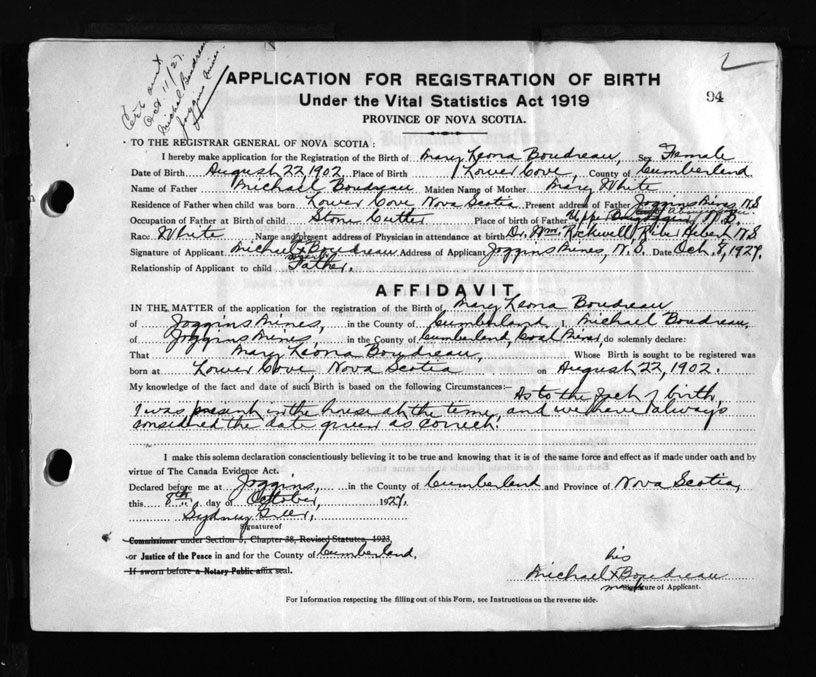 Cert sent
Oct 11/27.
Michael Boudreau
Joggins Mines.
2
APPLICATION FOR REGISTRATION OF BIRTH
94
Under the Vital Statistics Act 1919
PROVINCE OF NOVA SCOTIA.
TO THE REGISTRAR GENERAL OF NOVA SCOTIA:
I hereby make application for the Registration of the Birth of Mary Leona Boudreau, Sex Female
Date of Birth August 22, 1902 Place of Birth Lower Cove, County of Cumberland
Name of Father Michael Boudreau Maiden Name of Mother Mary White
Residence of Father when child was born Lower Cove Nova Scotia Present address of Father Joggins Mines, N.S
Occupation of Father at Birth of child Stone Cutter Place of birth of Father N.B.
Race White Name and present address of Physician in attendance at birth Dr. Wm. Rockwell River Hebert N.S
Signature of Applicant Michael X Boudreau Address of Applicant Joggins Mines, N.S. Date Oct. 8, 1927.
Relationship of Applicant to child Father.
AFFIDAVIT
IN THE MATTER of the application for the registration of the Birth of Mary Leona Boudreau
of Joggins Mines, in the County of Cumberland, I, Michael Boudreau,
of Joggins Mines, in the County of Cumberland, Coal Miner, do solemnly declare:
That Mary Leona Boudreau, Whose Birth is sought to be registered was
born at Lower Cove, Nova Scotia on August 22, 1902.
My knowledge of the fact and date of such Birth is based on the following Circumstances:— As to the fact of birth,
I was present in the house at the time, and we have always
considered the date given as correct.
I make this solemn declaration conscientiously believing it to be true and knowing that it is of the same force and effect as if made under oath and by
virtue of The Canada Evidence Act.
Declared before me at Joggins, in the County of Cumberland and Province of Nova Scotia,
this 8th day of October, 1927.
Sydney
Signature of
Commissioner under Section 5, Chapter 38, Revised Statutes, 1923,
or Justice of the Peace in and for the County of Cumberland,
If sworn before a Notary Public affix seal.
his
Michael X Boudreau
mark
Signature of Applicant.
For Information respecting the filling out of this Form, see Instructions on the reverse side.